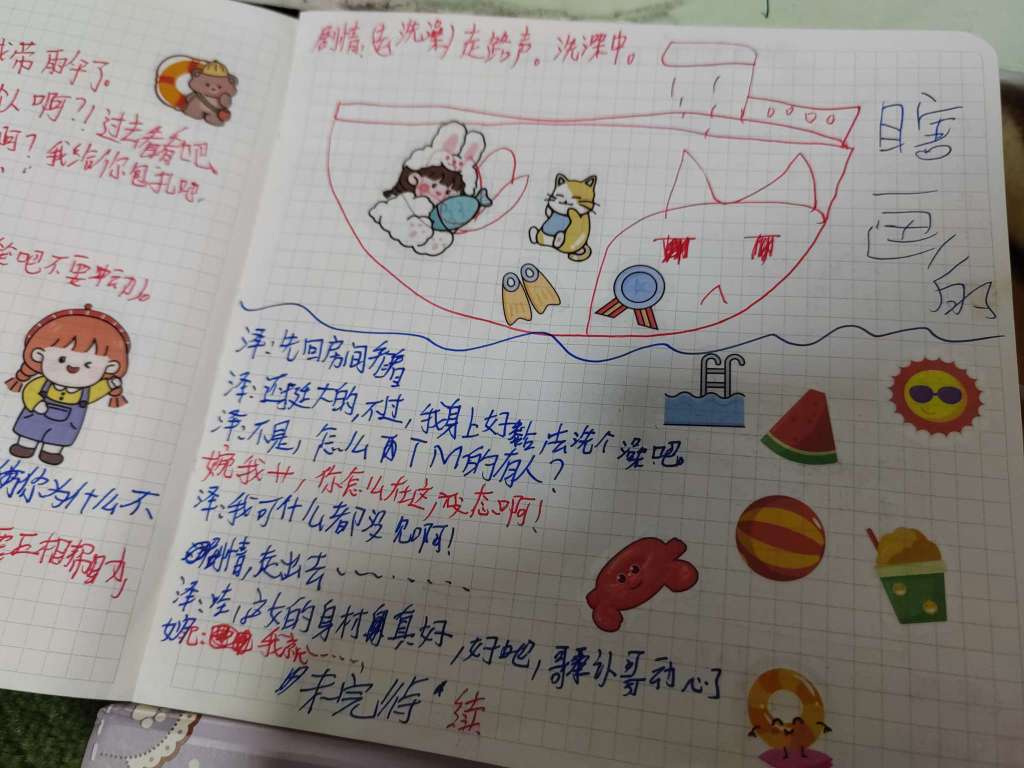 我带雨伞了。
认啊?!过去看看吧
啊?我给你包扎吧。
吧不要
你为什么不
互相帮助,
剧情(去洗澡)走路声。洗澡中。
瞎
一
色
的
泽:先回房间看看
泽:还挺大的,不过,我身上好黏,去洗个澡吧
泽:不是,怎么TM的有人?
婉我艹,你怎么在这,变态啊!
泽:我可什么都没见啊!
剧情,走出去
泽:哇,这女的身材真好,好吧,承认哥动心了
婉:我就……
"未完待"续